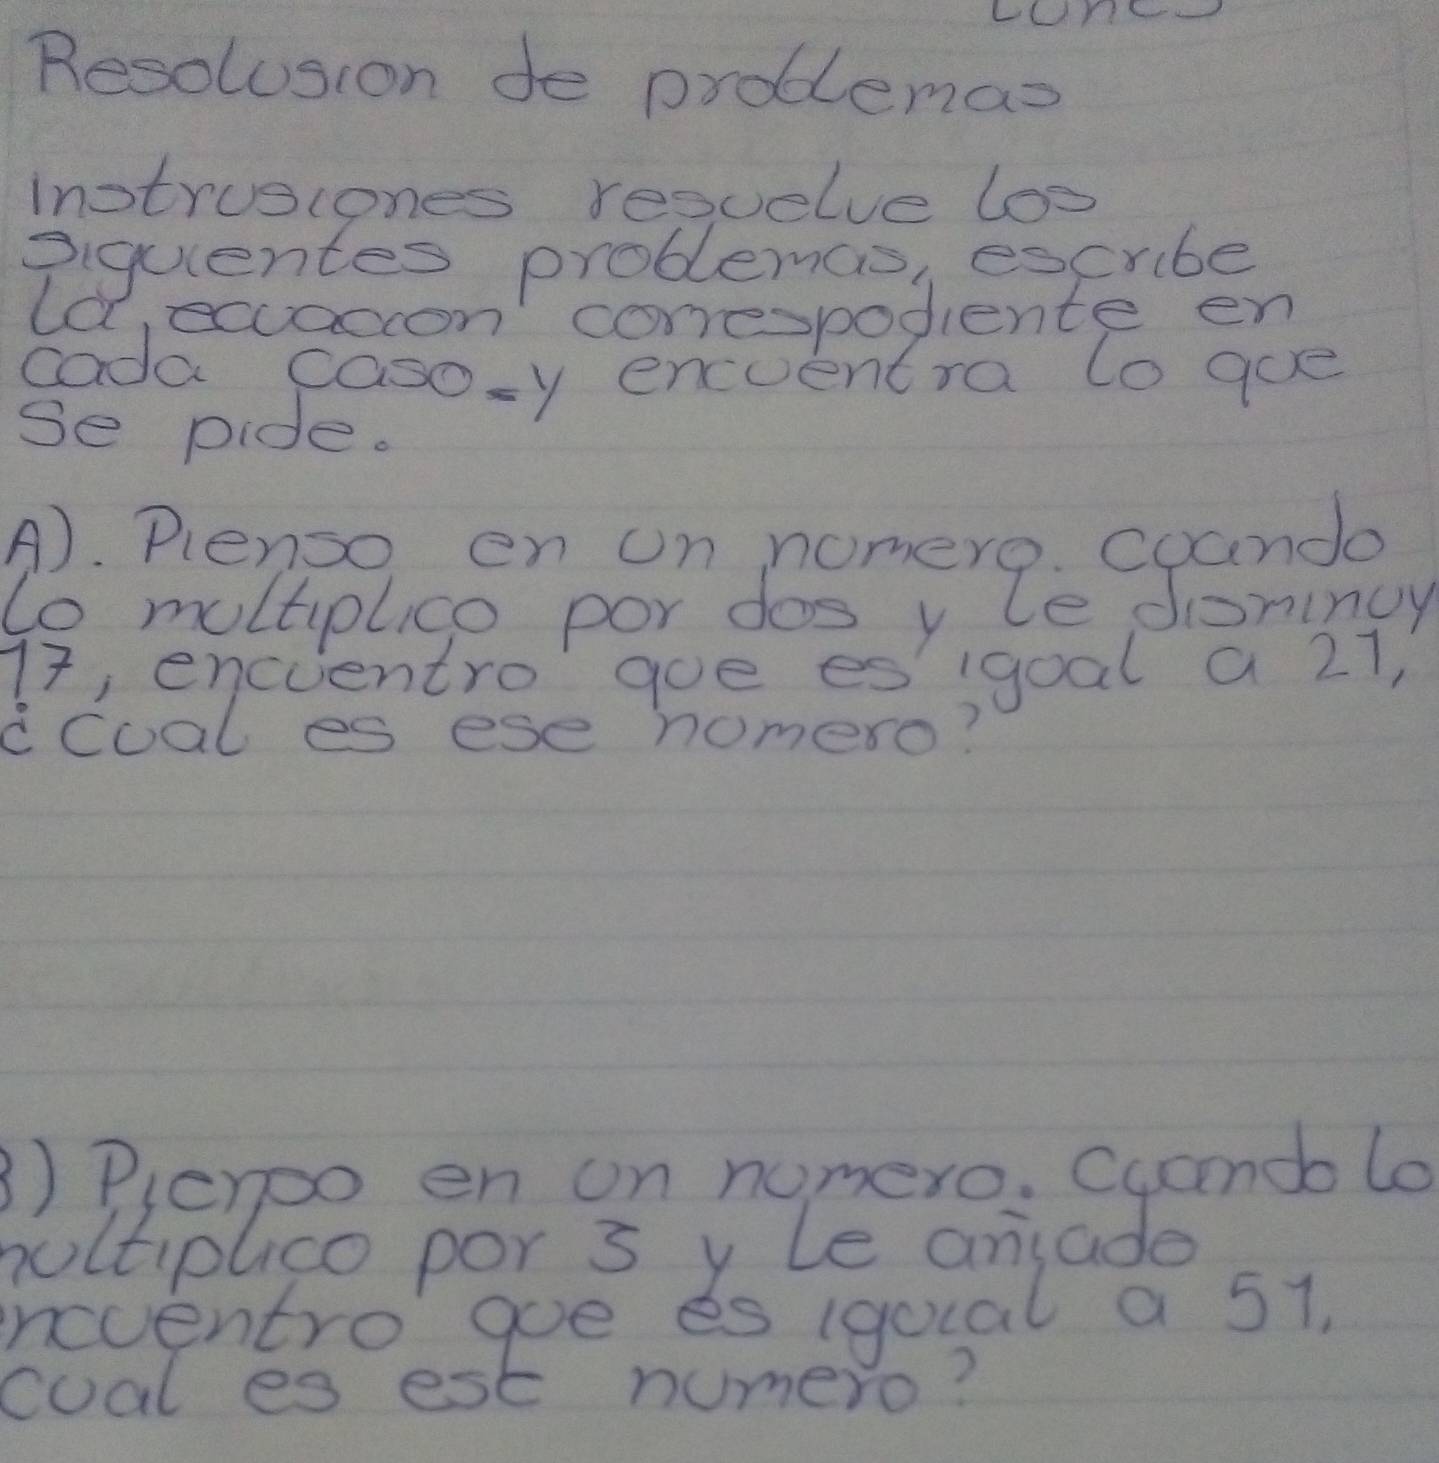 Lunes
Resolusion de problemas
instrusiones resuelve los
siguientes problemas, escribe
la, ecuacion correspodiente en
cada caso-y encuentra lo que
se pide.
A). Pienso en un numero. cuando
lo multiplico por dos y le disminuy
17, encuentro que es igual a 21,
¿cual es ese numero?
B) Pienso en un numero. Cuando lo
multiplico por 3 y le añiado
encuentro que es iguial a 51.
cual es ese numero?